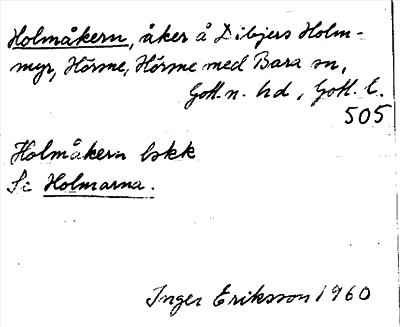 Holmåkern, åker å Dibjers Holm-
myr, Hörsne, Hörsne med Bara sn,
Gotl. n. hd, Gotl. l.
505
Holmåkern bskk
Se Holmarna.
Inger Eriksson 1960